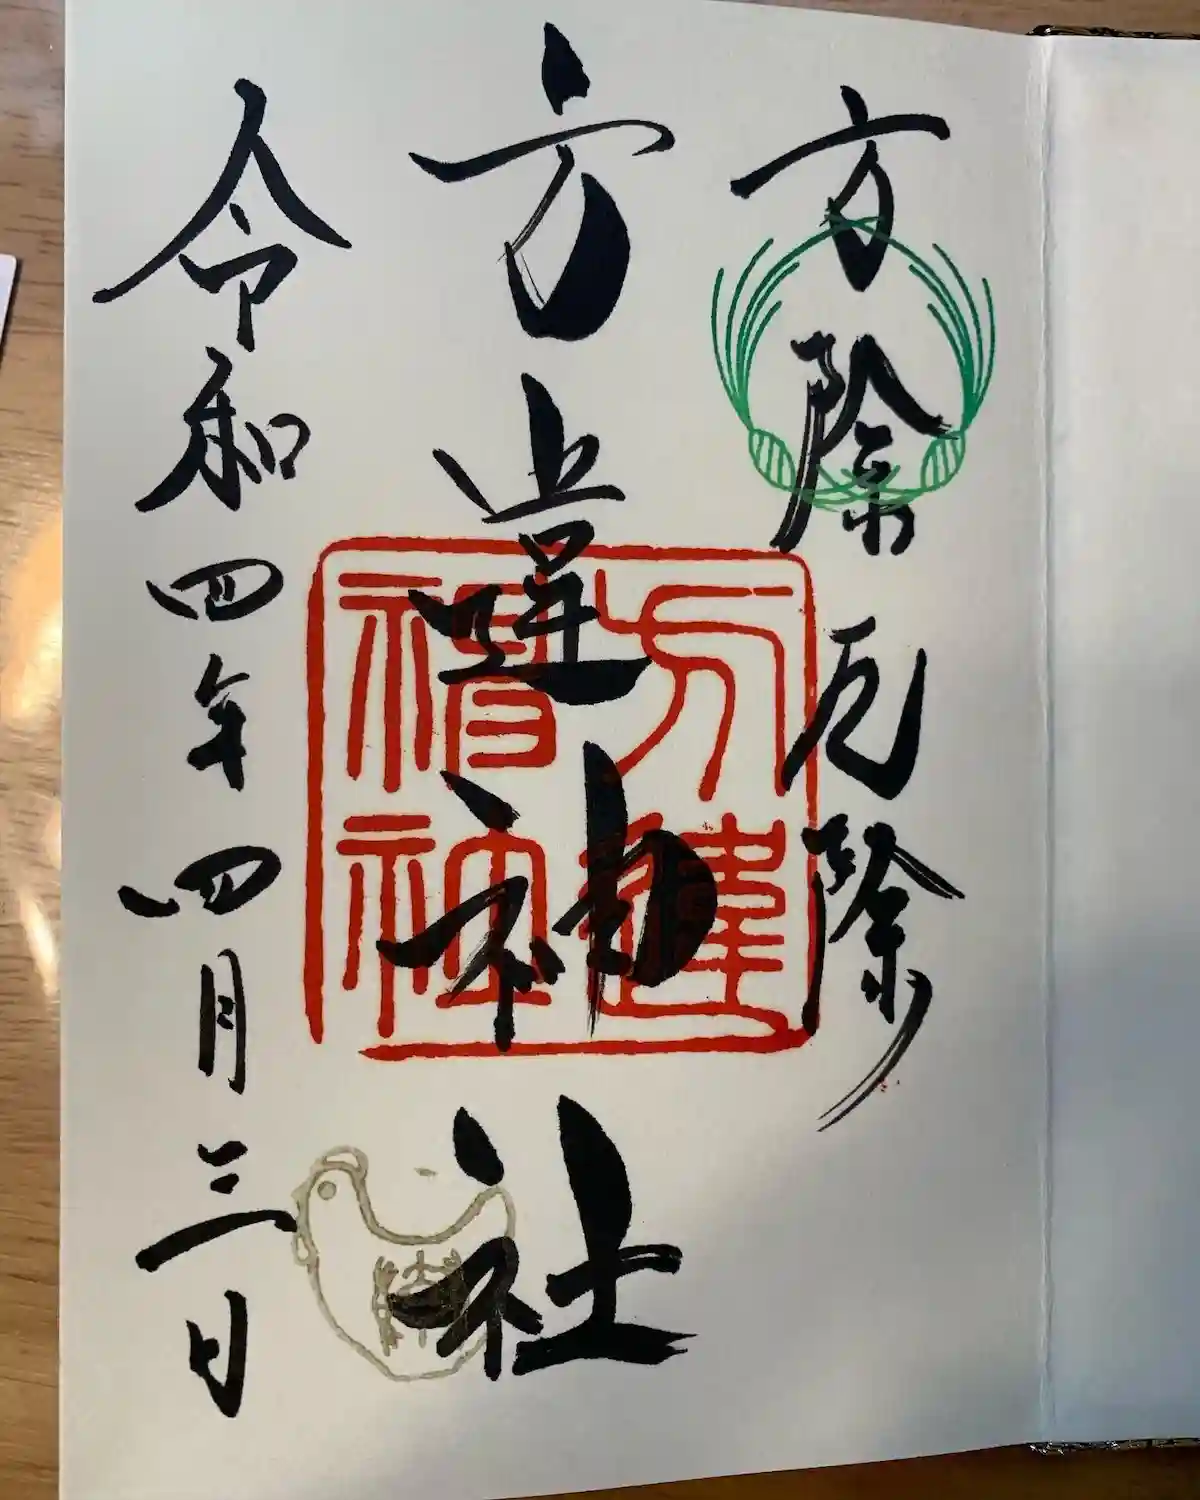 方除 厄除
方違神社
方違神社
令和四年四月三日